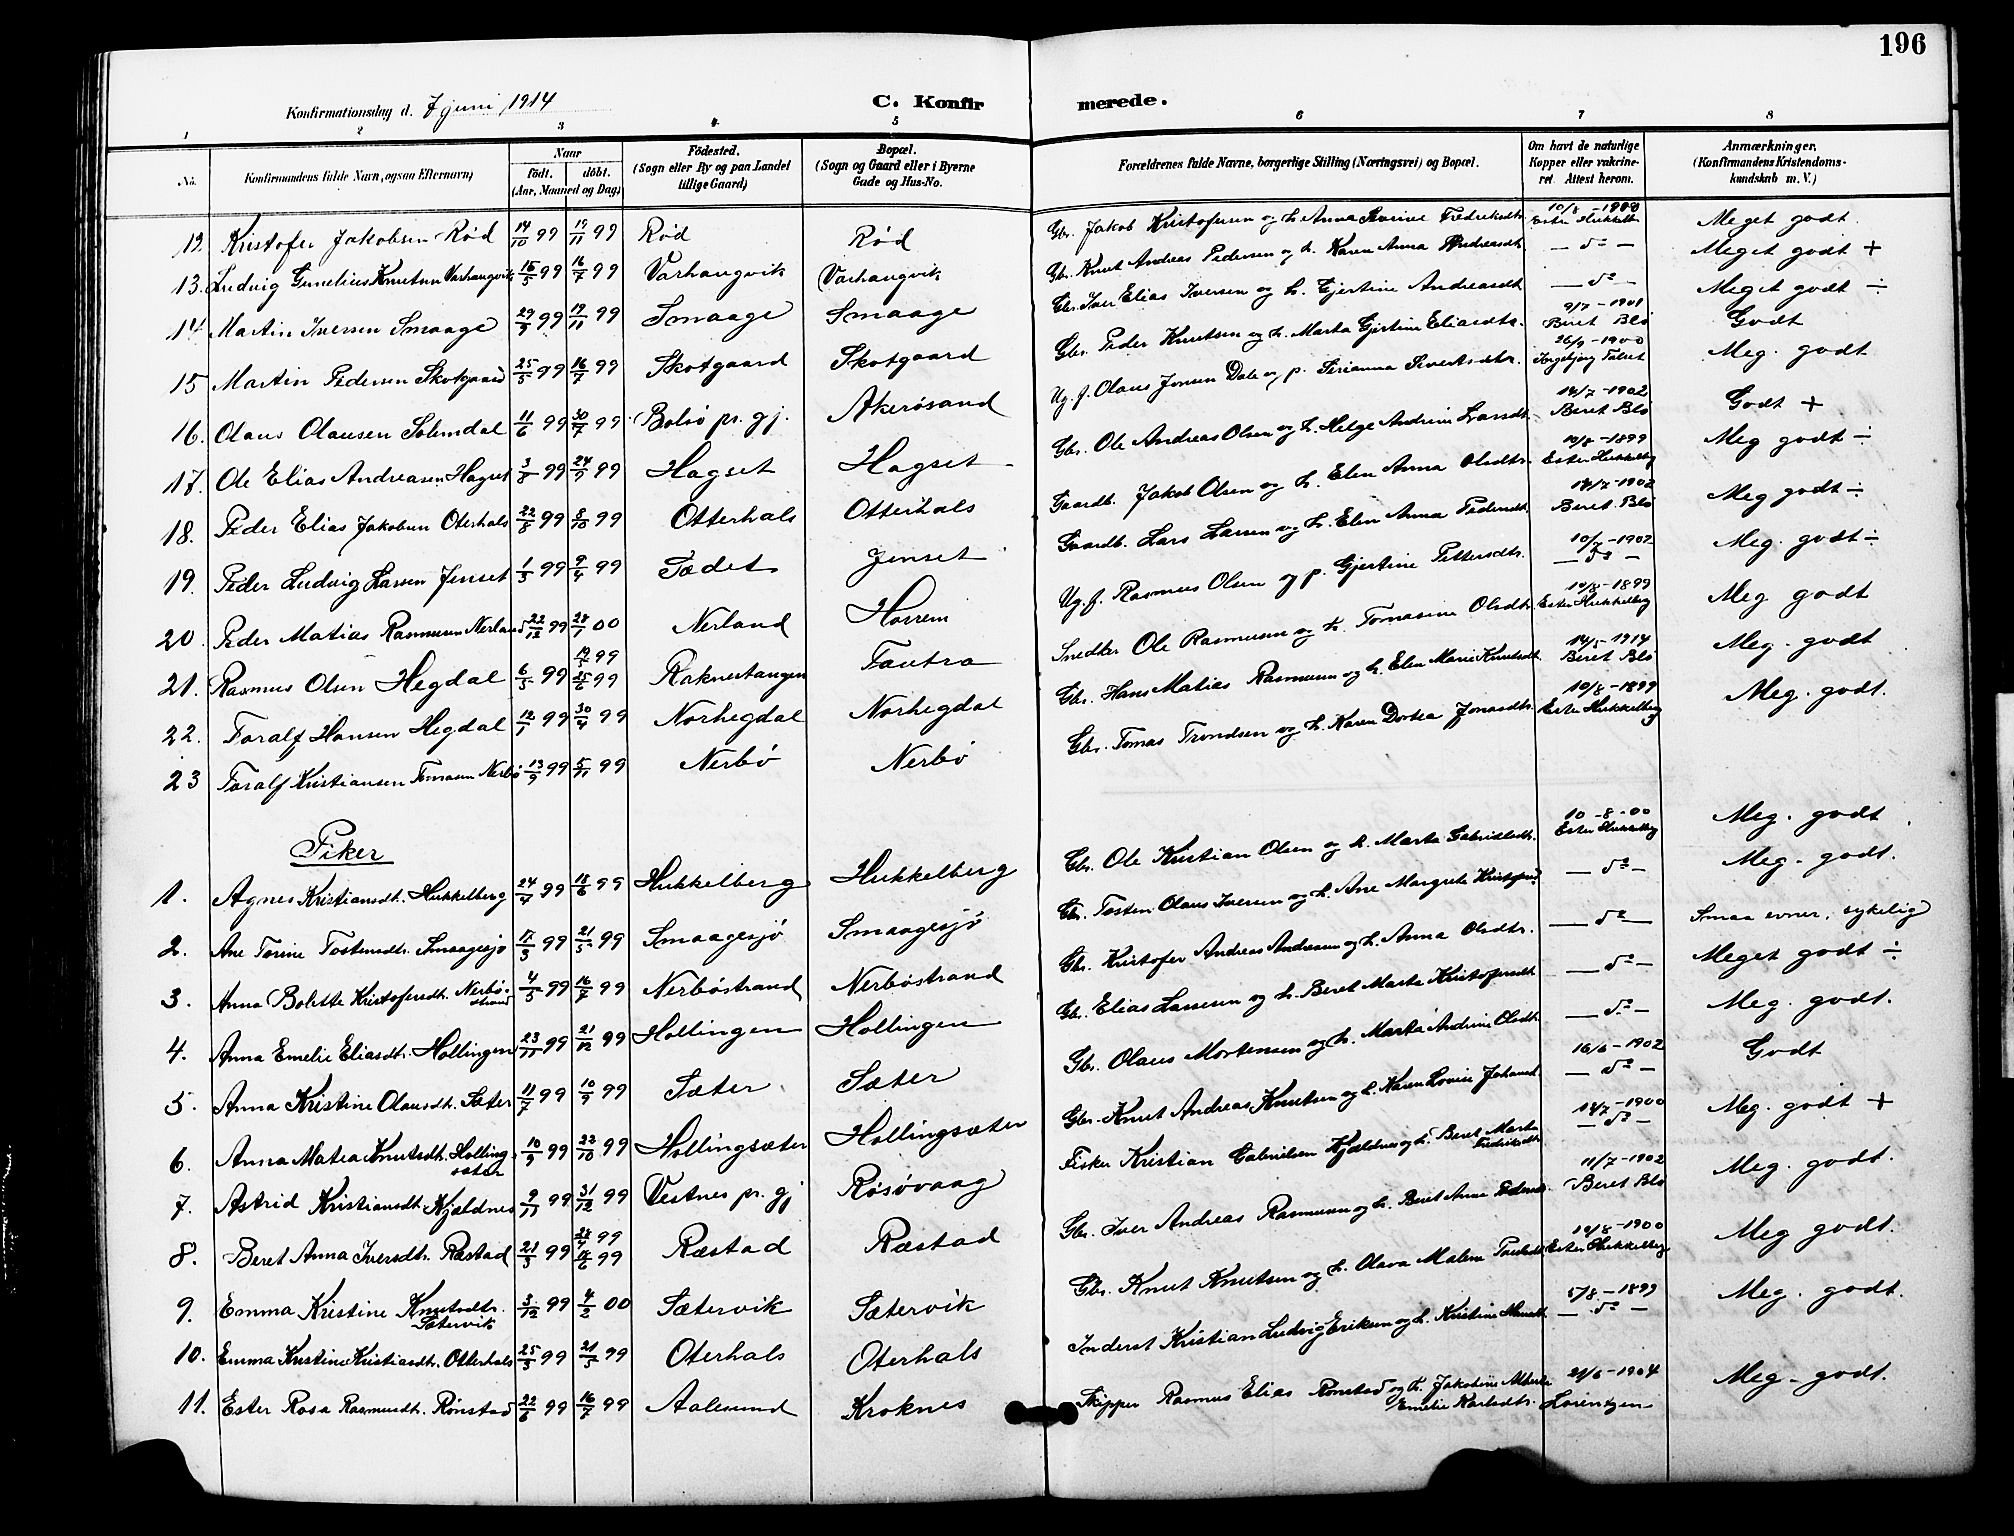 196
Konfirmationsdag d. 7 juni 1914 C. Konfirmerede.
1 2 3 4 5 6 7 8
No. Konfirmandens fulde Navn, ogsaa Efternavn) Naar födt. döbt. (Aar, Maaned og Dag) Födested. (Sogn eller By og paa Landet tillige Gaard) Bopæl. (Sogn og Gaard eller i Byerne Gade og Hus-No. Forældrenes fulde Navne, borgerlige Stilling (Næringsvei) og Bopæl. Om havt de naturlige Kopper eller vakcineret. Attest herom. Anmærkninger. (Konfirmandens Kristendomskundskab m. V.)
12. Kristofer Jakobsen Rød 14/10 99 19/11 99 Rød Rød Gbr. Jakob Kristofersen og h. Anna Severine Fredriksdtr. 10/8 - 1900 Ester Hukkelb. Meget godt.
13. Ludvig Gunelius Knutsen Varhaugvik 15/5 99 16/7 99 Varhaugvik Varhaugvik Gbr. Knut Andreas Pedersen og h. Karen Anna Andreasdt — do — Meget godt +
14 Martin Iversen Smaage 29/9 99 19/11 99 Smaage Smaage Gbr. Iver Elias Iversen og h. Gjertine Andreasdt — do — Meget godt ÷
15 Martin Pedersen Skotgaard 25/5 99 16/7 99 Skotgaard Skotgaard Gbr. Peder Knutsen og h. Marta Gjertine Eliasdtr. 9/7 - 1901 Beret Blø Godt
16. Olaus Olausen Solemdal 11/6 99 30/7 99 Bolsø pr. gj. Akerøsand Ug. f. Olaus Jonsen Dale og p. Sirianna Sivertsdtr. 26/9 - 1900 Ingebjørg Meg. godt
17. Ole Elias Andreasen Hagset 3/8 99 24/9 99 Hagset Hagset Gbr. Ole Andreas Olsen og h. Helge Andrine Larsdt. 14/7 - 1902 Beret Blø Godt +
18. Peder Elias Jakobsen Oterhals 22/8 99 8/10 99 Otterhals Otterhals Gaardb. Jakob Olsen og h. Elen Anna Olsdtr. 10/8 - 1899 Ester Hukkelbg Meg godt ÷
19. Peder Ludvig Larsen Jenset 1/3 99 9/4 99 Tødet Jenset Gaardb. Lars Larsen og h. Elen Anna Pedersdt. 14/7 - 1902 Beret Blø Meg godt ÷
20 Peder Matias Rasmusen Nerland 22/12 99 28/1 00 Nerland Harrem Ug. f. Rasmus Olsen og p. Gjertine Pettersdtr. 10/7 - 1902 — do — Meg. godt ÷
21. Rasmus Olsen Hegdal 6/5 99 25/6 99 Raknestangen Tautra Snedker Ole Rasmusen og h. Tomasine Olsdtr. 10/8 - 1899 Ester Hukkelbg Meg godt
22. Toralf Hansen Hegdal 12/1 99 30/4 99 Norhegdal Norhegdal Gbr. Hans Matias Rasmusen og h. Elen Marie Knutsdt. 1914 Beret Blø Meg. godt
23 Toralf Kristiansen Tomasen Nerbø 13/9 99 5/11 99 Nerbø Nerbø Gbr. Tomas Trondsen og h. Karen Dortea Jonasdtr. 10/8 - 1899 Ester Hukkelberg Meg. godt.
Piker
1. Agnes Kristiansdt. Hukkelberg 24/4 99 18/6 99 Hukkelberg Hukkelberg Gbr. Ole Kristian Olsen og h. Marta Gabrielsdtr. 10 - 8 - 00 Ester Hukkelbg Meg. godt
2. Ane Torine Tostensdtr. Smaagesjø 17/3 99 21/5 99 Smaagesjø Smaagesjø Gbr. Tosten Olaus Iversen og h. Ane Margrete Kristofersd. — do — Meg. godt.
3. Anna Bolette Kristofersdt. Nerbøstrand 4/5 99 16/7 99 Nerbøstrand Nerbøstrand Gbr. Kristofer Andreas Andreasen og h. Anna Olsdtr. — do — Smaa evner, sykelig
4. Anna Emelie Eliasdt. Hollingen 23/11 99 21/12 99 Hollingen Hollingen Gbr. Elias Larssen og h. Beret Marta Kristofersdt — do — Meget godt ÷
5. Anna Kristine Olausdt. Sæter 11/7 99 10/9 99 Sæter Sæter Gbr. Olaus Mortensen og h. Marta Andrine Olsdt. — do — Meg. godt.
6. Anna Matea Knutsdt. Hollingsæter 10/9 99 22/10 99 Hollingsæter Hollingsæter Gbr. Knut Andreas Knutsen og h. Karen Lovise Johansd 16/6 - 1902 — do — Godt
7. Astrid Kristiansdt. Kjældnes 9/11 99 31/12 99 Vestnes pr. gj Røsøvaag Fisker Kristian Gabrielsen Kjældnes og h. Beret Marta Fredriksdt. 14/7 - 1900 — do — Meg. godt +
8. Beret Anna Iversdt. Ræstad 21/3 99 Ræstad Ræstad Gbr. Iver Andreas Rasmusen og h. Beret Anne Pedersd. 11/7 - 1902 Beret Blø Meg. godt.
9. Emma Kristine Knutsdtr. Sætervik 3/12 99 4/2 00 Sætervik Sætervik Gbr. Knut Knutsen og h. Olava Malene 10/8 - 1900 Ester Hukkelberg Meg godt.
10. Emma Kristine Kristiansdt. Otterhals 25/3 99 21/5 99 Oterhals Oterhals Inderst Kristian Ludvig Eriksen og h. Kristine 5/8 - 1899 — do — Meg. godt.
11. Ester Rosa Rasmusdt. Rønstad 22/6 99 16/7 99 Aalesund Kroknes Skipper Rasmus Elias Rønstad og h. Jakobine Alberte Emelie Karlsdtr. 21/6 - 1904 Lorentzen Meg. godt.